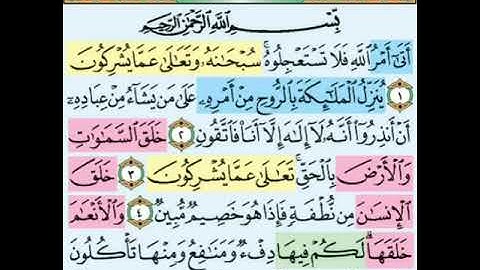 بِسْمِ ٱللَّهِ ٱلرَّحْمَٰنِ ٱلرَّحِيمِ
أَتَىٰٓ أَمْرُ ٱللَّهِ فَلَا تَسْتَعْجِلُوهُ ۚ سُبْحَٰنَهُۥ وَتَعَٰلَىٰ عَمَّا يُشْرِكُونَ
١ يُنَزِّلُ ٱلْمَلَٰٓئِكَةَ بِٱلرُّوحِ مِنْ أَمْرِهِۦ عَلَىٰ مَن يَشَآءُ مِنْ عِبَادِهِۦٓ
أَنْ أَنذِرُوٓا۟ أَنَّهُۥ لَآ إِلَٰهَ إِلَّآ أَنَا۠ فَٱتَّقُونِ ٢ خَلَقَ ٱلسَّمَٰوَٰتِ
وَٱلْأَرْضَ بِٱلْحَقِّ ۚ تَعَٰلَىٰ عَمَّا يُشْرِكُونَ ٣ خَلَقَ
ٱلْإِنسَٰنَ مِن نُّطْفَةٍ فَإِذَا هُوَ خَصِيمٌ مُّبِينٌ ٤ وَٱلْأَنْعَٰمَ
خَلَقَهَا ۗ لَكُمْ فِيهَا دِفْءٌ وَمَنَٰفِعُ وَمِنْهَا تَأْكُلُونَ